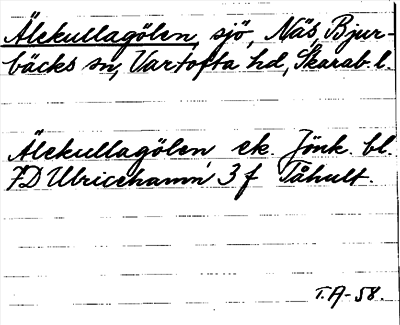 Älekullagölen, sjö, Näs, Bjur-
bäcks sn, Vartofta hd, Skarab. l.
Älekullagölen ek. Jönk. bl.
7D Ulricehamn 3 f Tåhult.
T.A-58.